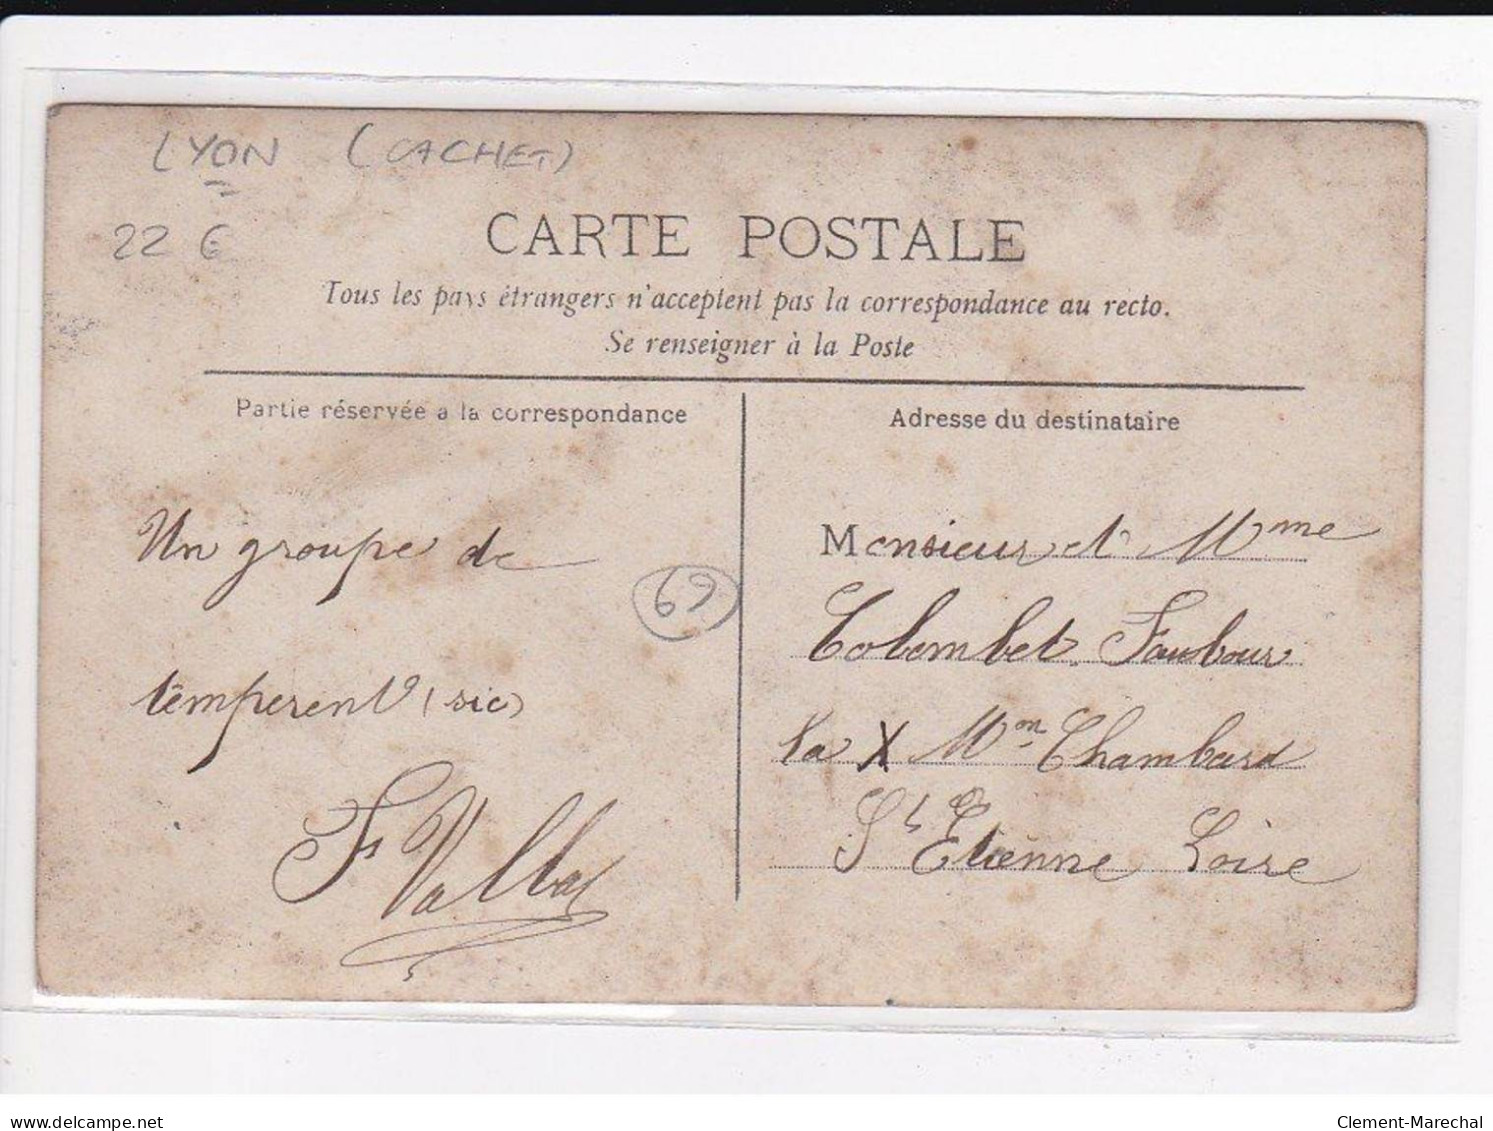 LYON (CACHET)
22 €
CARTE POSTALE
Tous les pays étrangers n'acceptent pas la correspondance au recto.
Se renseigner à la Poste
Partie réservée a la correspondance
Adresse du destinataire
Un groupe de
tempérent (sic)
F Valla
69
Monsieur et Mme
Colombet Faubour
la X Mon Chambard
St Etienne Loire
www.delcampe.net
Clement-Marechal